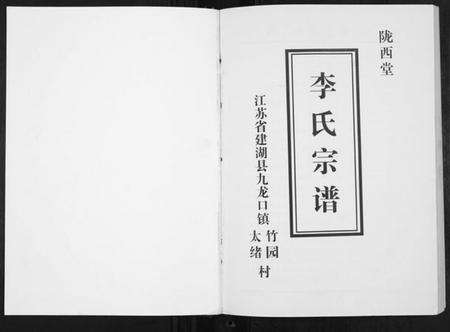 陇西堂
李氏宗谱
江苏省建湖县九龙口镇
竹园
太绪
村